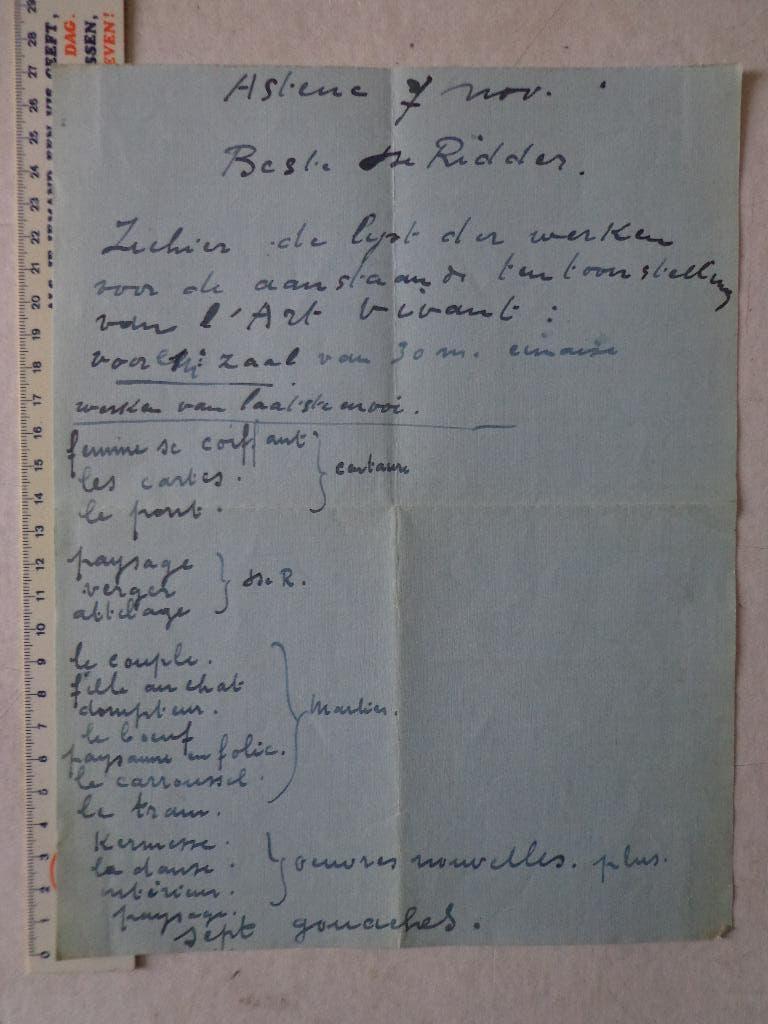 Astene 7 nov.
Beste de Ridder.
Ziehier de lyst der werken
voor de aanstaande tentoonstelling
van l'Art Vivant :
voor zaal van 30 m. cimaise
werken van laatste envoi.
femme se coiffant
les cartes.
le pont.
centaure
paysage
verger
attelage
de R.
le couple.
fille au chat
dompteur.
le boeuf
paysanne en folie.
le carroussel.
le tram.
Marlier.
Kermesse.
la danse.
intérieur.
paysage.
oeuvres nouvelles. plus.
sept gouaches.
DAG.